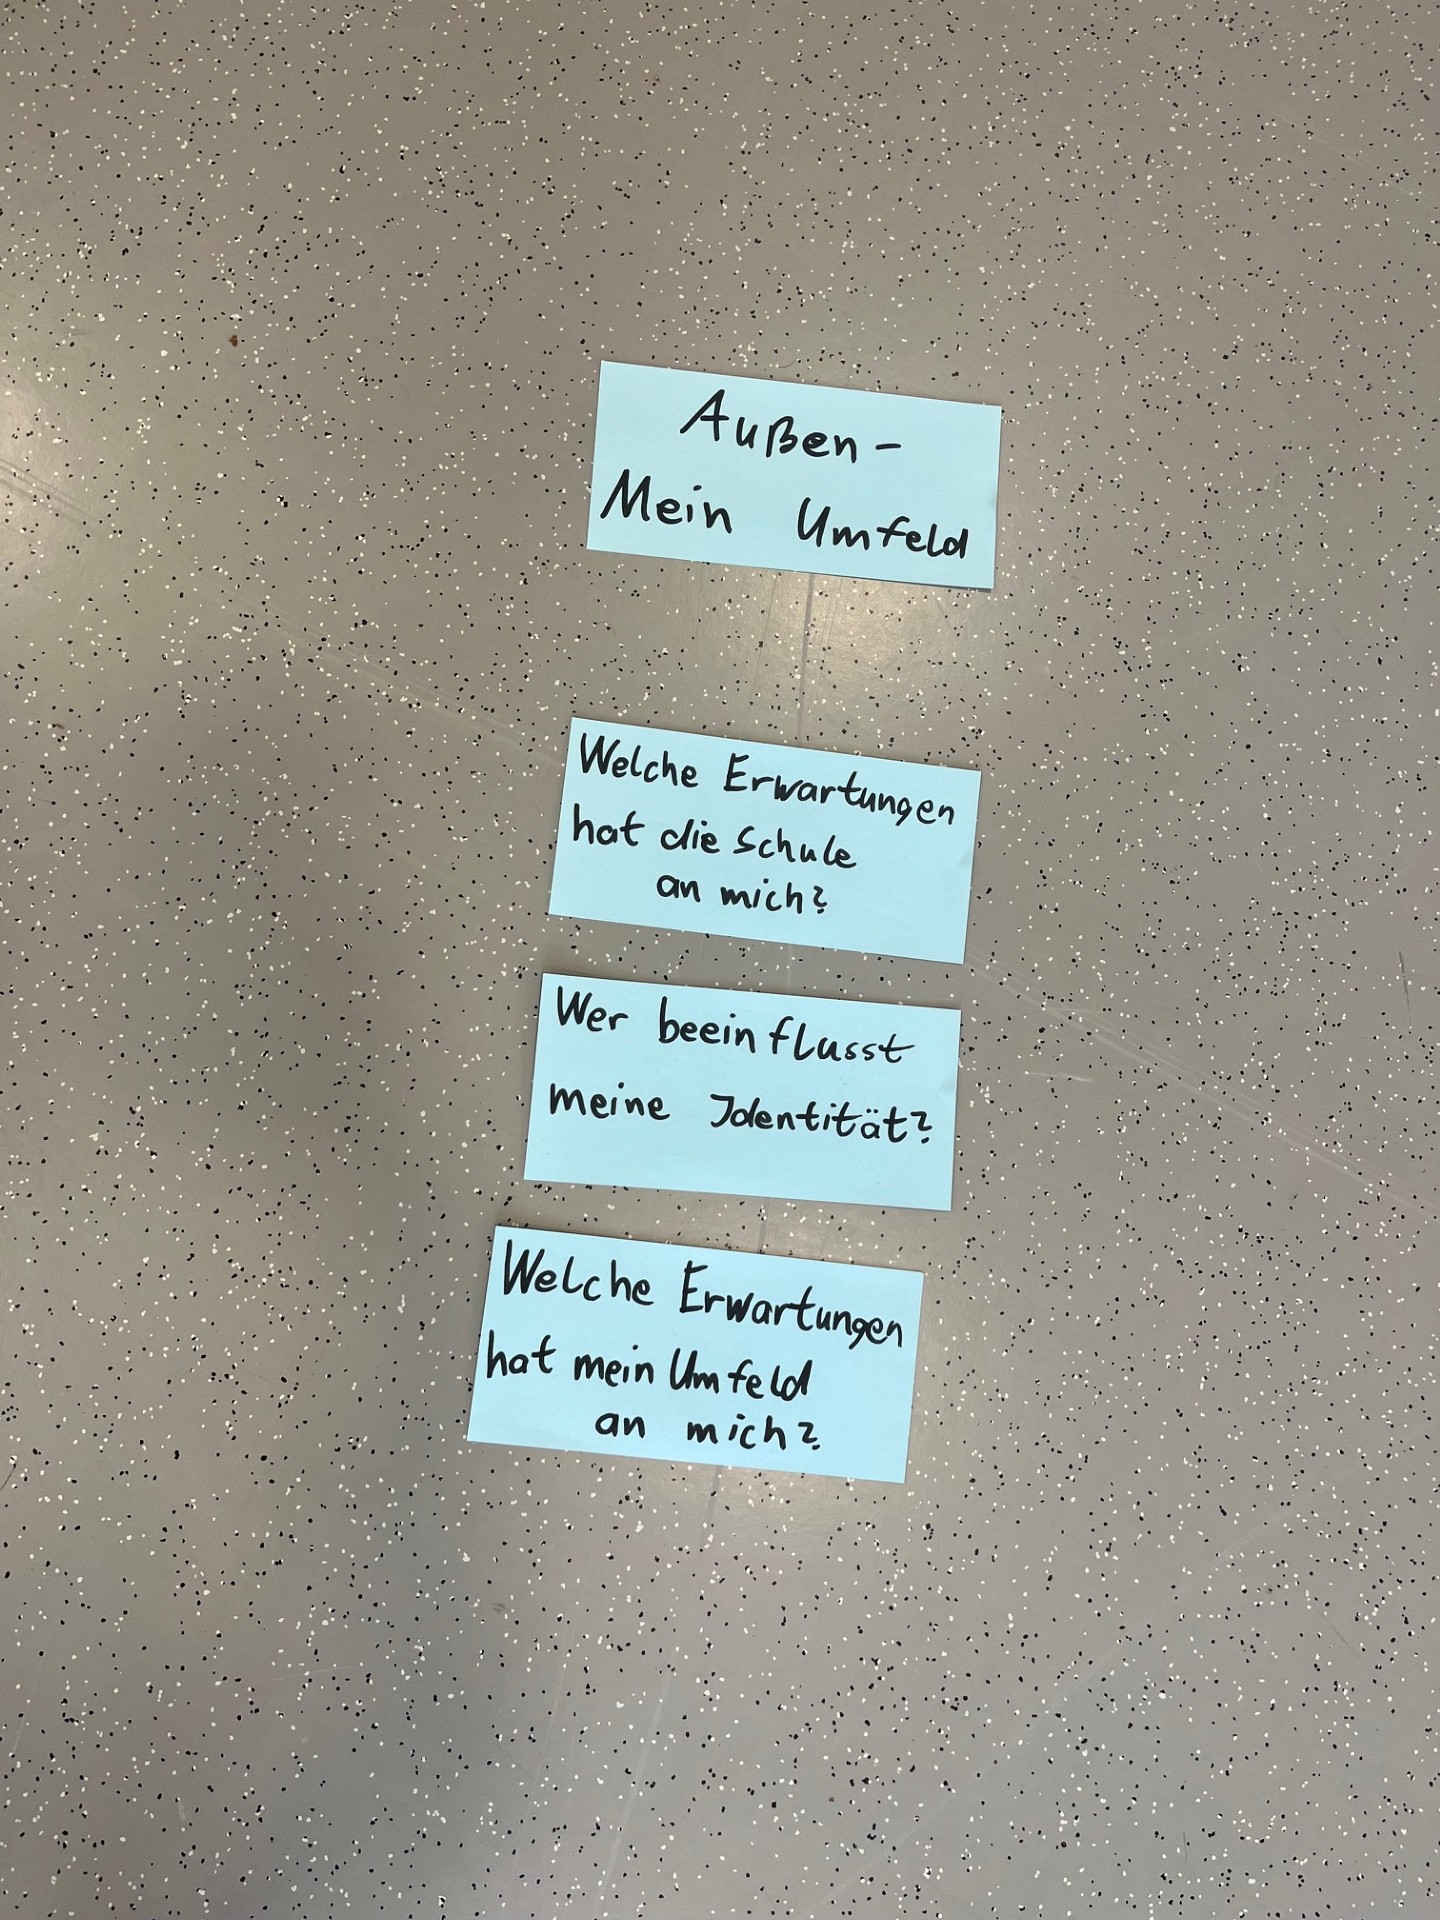 Außen-
Mein Umfeld
Welche Erwartungen
hat die Schule
an mich?
Wer beeinflusst
meine Identität?
Welche Erwartungen
hat mein Umfeld
an mich?